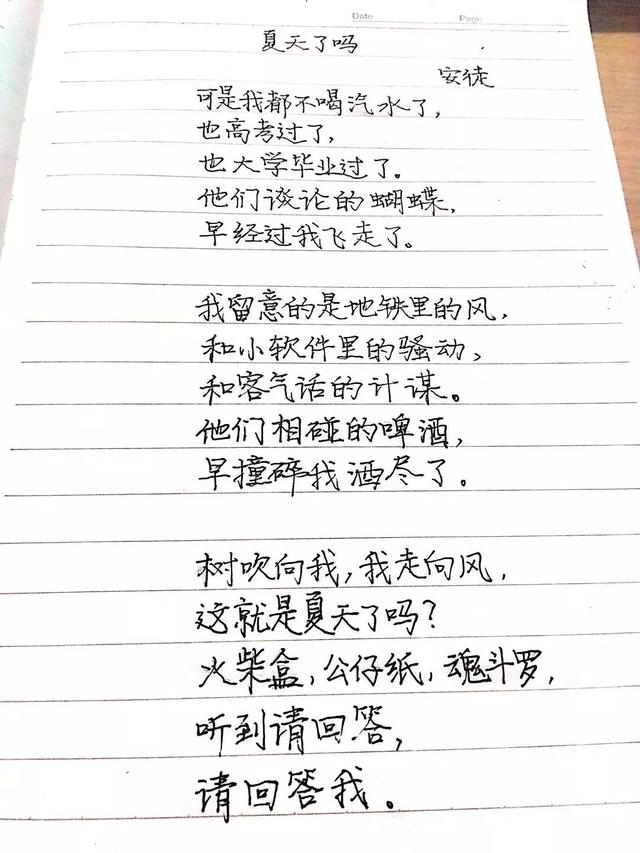 Date
Page
夏天了吗
安徒
可是我都不喝汽水了,
也高考过了,
也大学毕业过了。
他们谈论的蝴蝶,
早经过我飞走了。
我留意的是地铁里的风,
和小软件里的骚动,
和客气话的计谋。
他们相碰的啤酒,
早撞碎我洒尽了。
树吹向我,我走向风,
这就是夏天了吗?
火柴盒,公仔纸,魂斗罗,
听到请回答,
请回答我。